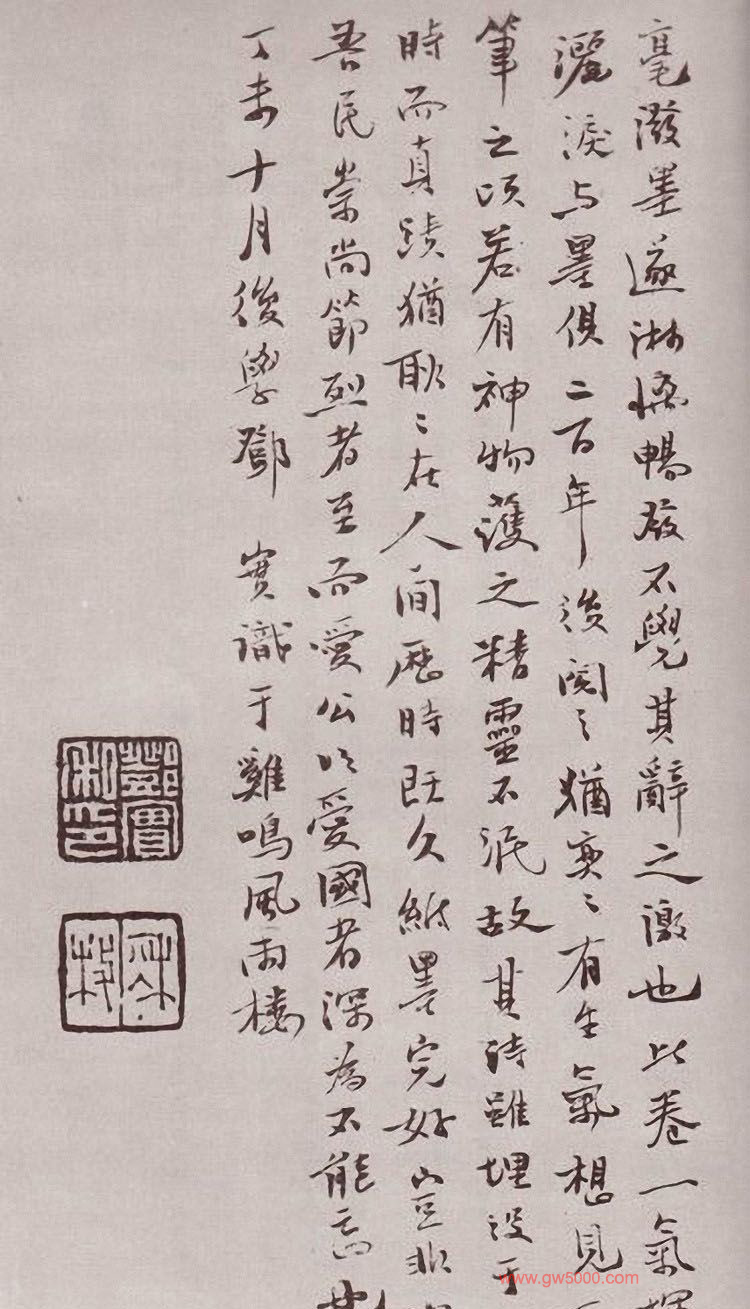 毫潑墨遂淋漓暢發不覺其辭之激也此卷一氣揮
灑淚與墨俱二百年後閱之猶奕〻有生氣想見
筆之頃若有神物護之精靈不泯故其詩雖埋沒于
時而真蹟猶耿〻在人間歷時既久紙墨完好豈非
吾民崇尚節烈者至而愛公以愛國者深為不能忘也
丁未十月後學鄧 實識于雞鳴風雨樓
鄧實私印
秋枚
www.gw5000.com